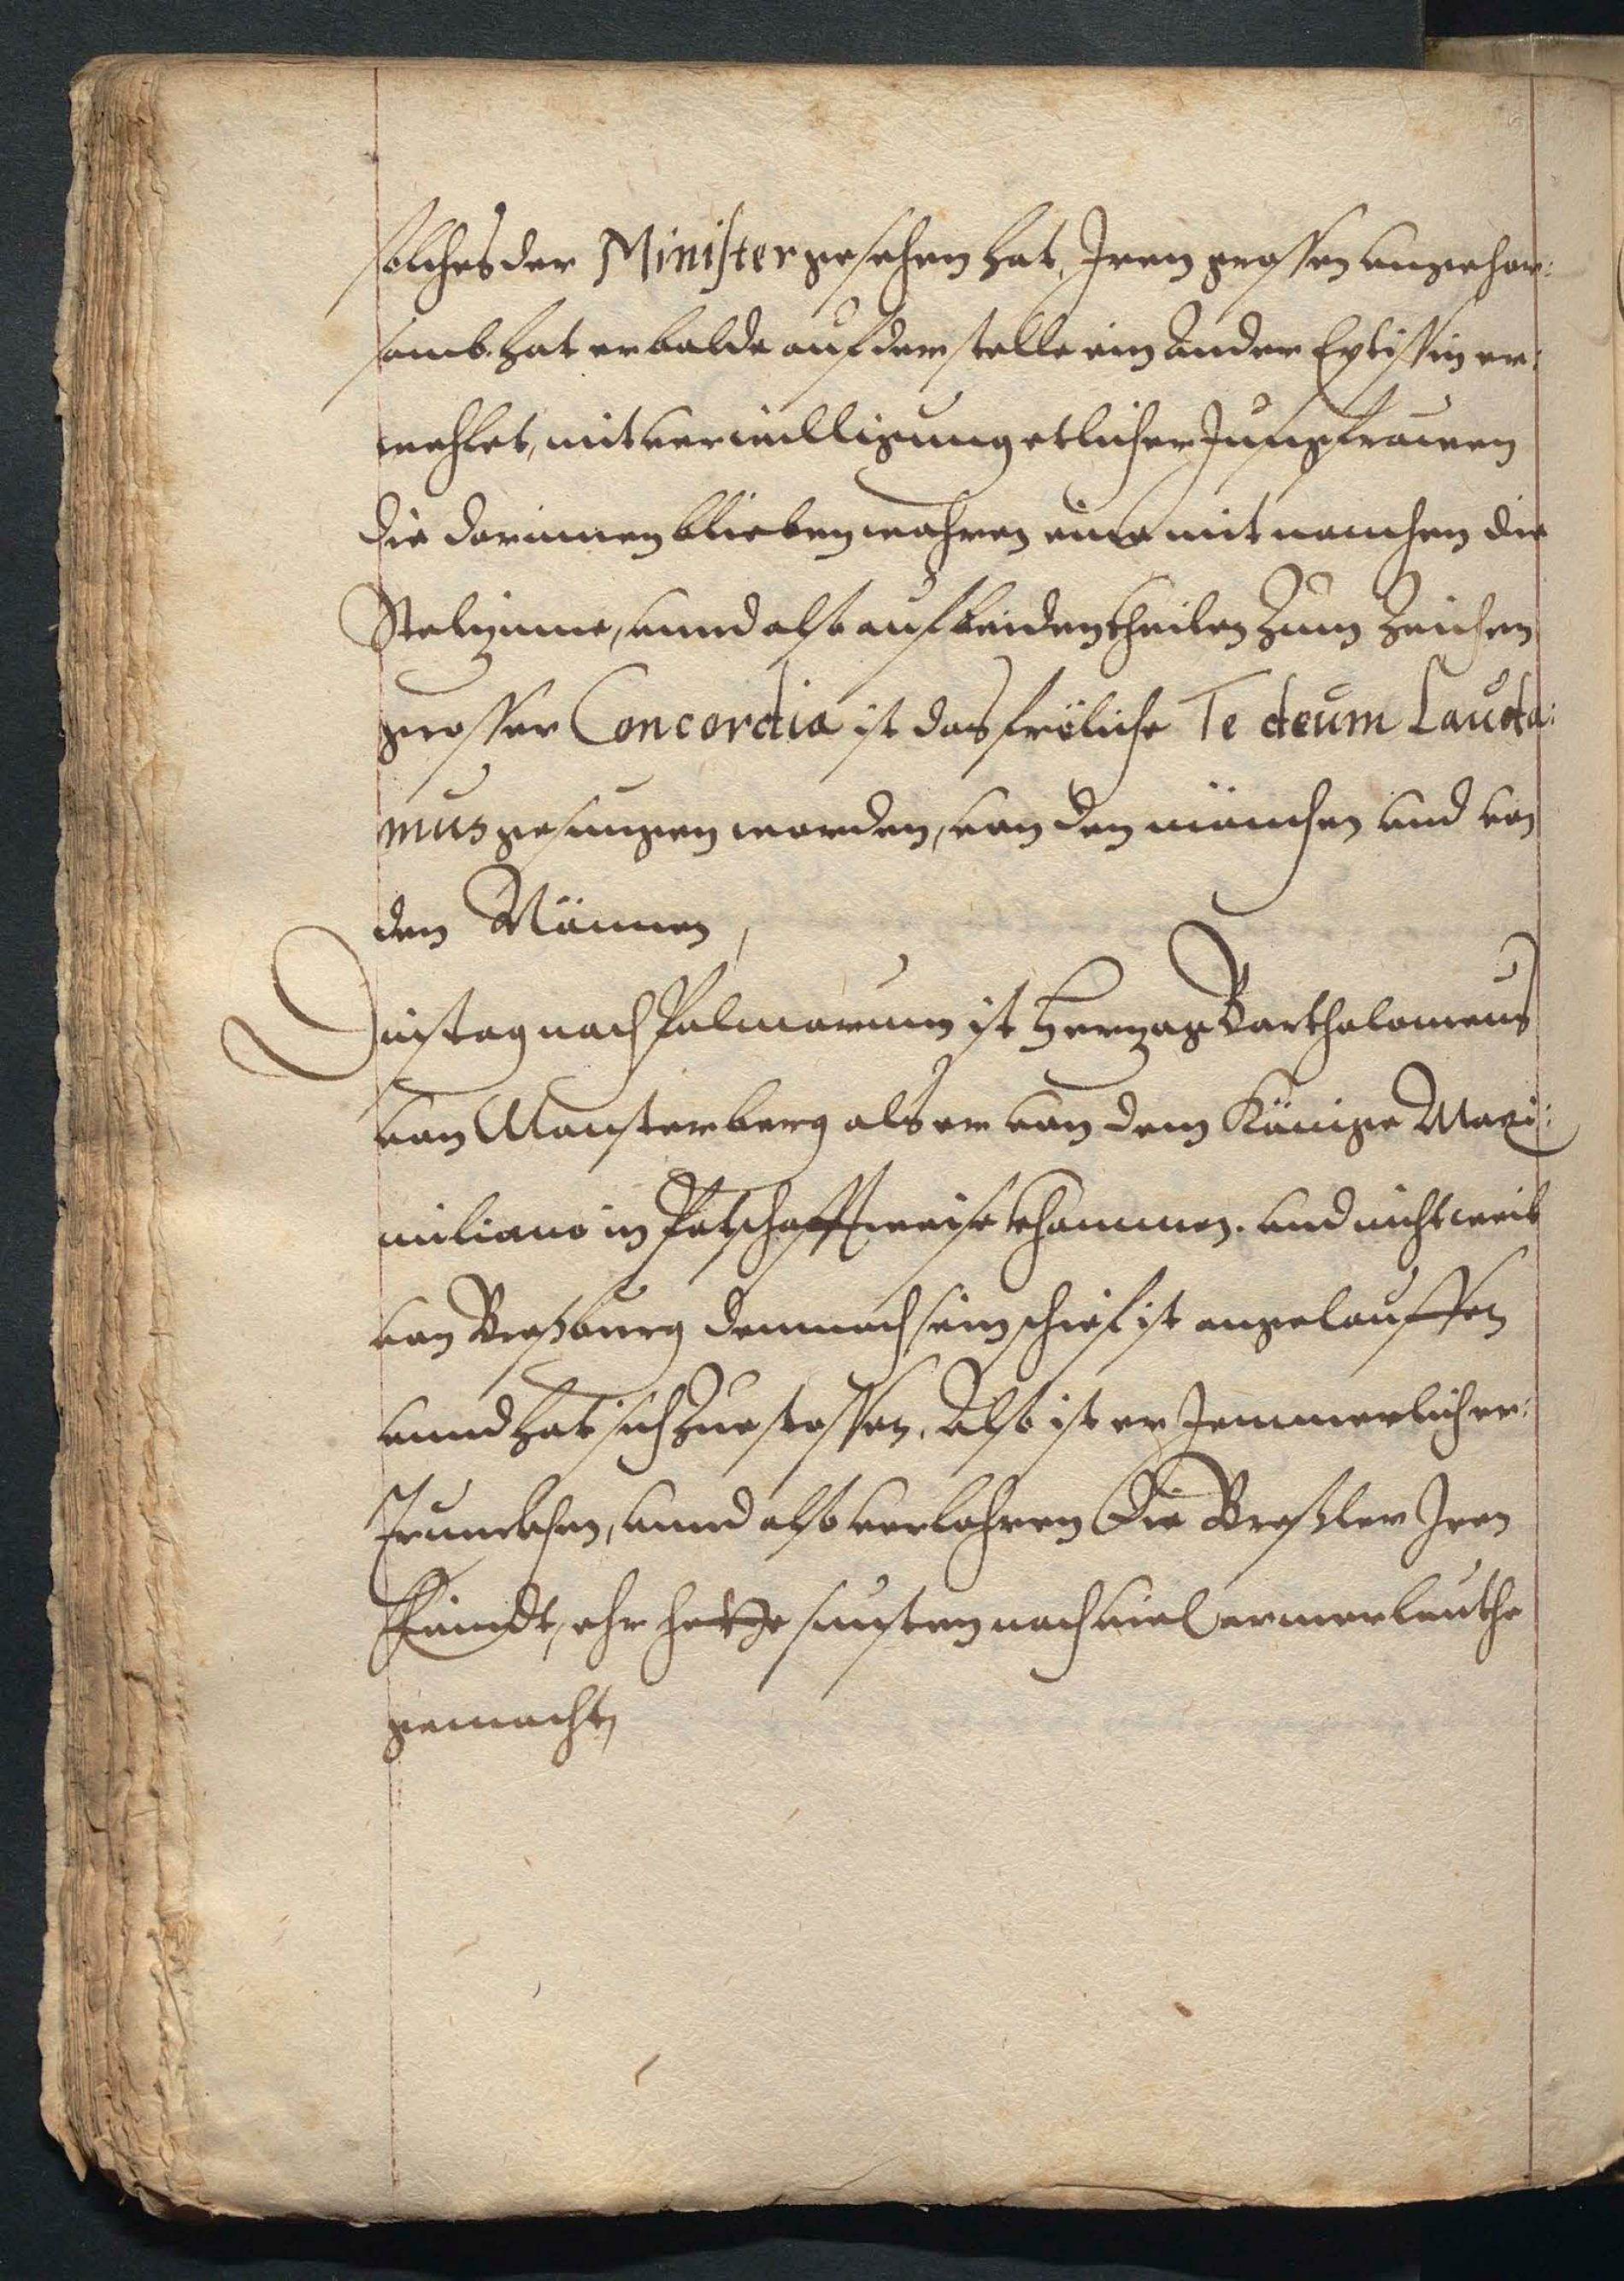 solches der Minister gesehen hat, Iren grossen ungehor:
samb. hat er balde auf der stelle ein Ander Eptissin er:
wehlet, mit verwilligung etlicher Jungfrauen
die darinnen blieben wahren eine mit namhen die
und also auf beiden theilen Zum Zeichen
grosser Concordia ist das fröliche Te deum Lauda:
mus gesungen worden, von den münchen und von
den Nünnen,
Dinstag nach Palmarum ist Hertzog Bartholomeus
von Monsterberg als er von dem Könige Maxi:
miliano in Potschafft weise khommen. und nicht weit
von Presburg demnach sein schief ist angelauffen
unnd hat sich zuestossen, Also ist er Jemmerlich er:
trunckhen, unnd also verlohren Die Breßler Iren
feindt, ehr hette sunsten noch viel armer leuthe
gemacht,